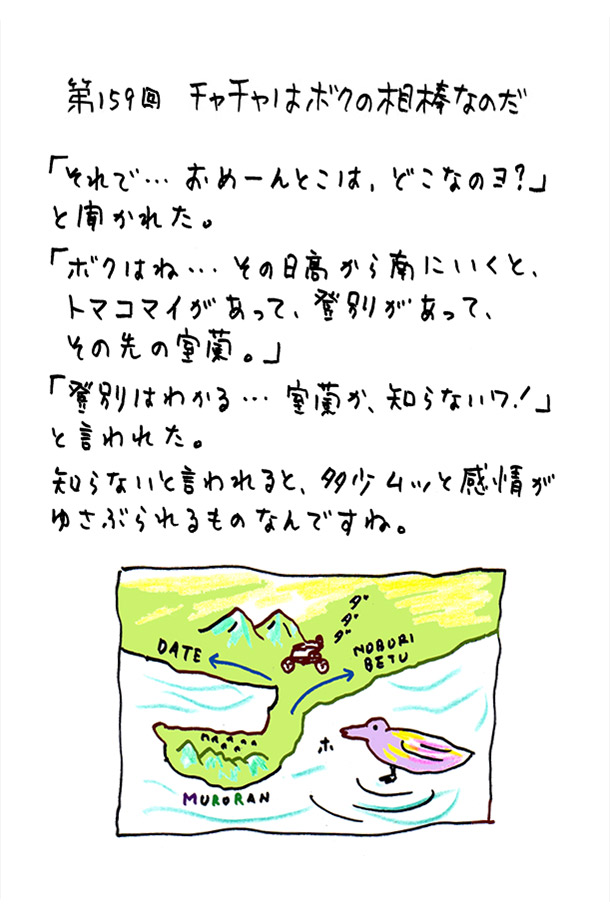 第159回 チャチャはボクの相棒なのだ
「それで… おめーんとこは、どこなのヨ?」
と聞かれた。
「ボクはね… その日高から南にいくと、
トマコマイがあって、登別があって、
その先の室蘭。」
「登別はわかる… 室蘭か、知らないワ!」
と言われた。
知らないと言われると、多少ムッと感情が
ゆさぶられるものなんですね。
ダダダ
DATE
NOBORI
BETU
ホ
MURORAN